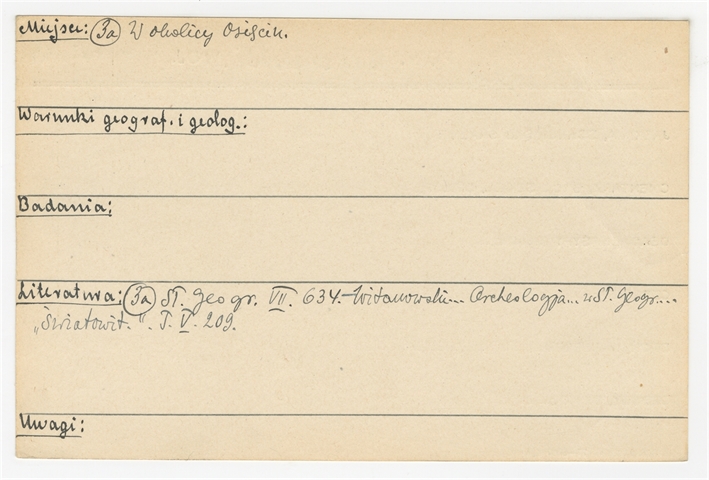 Miejsce: 3a W okolicy Osięcin.
Warunki geograf. i geolog.:
Badania:
Literatura: 3a Sł. geogr. VII. 634. - Witanowski... Archeologja... w Sł. Geogr....
„Światowit." T. V. 209.
Uwagi: